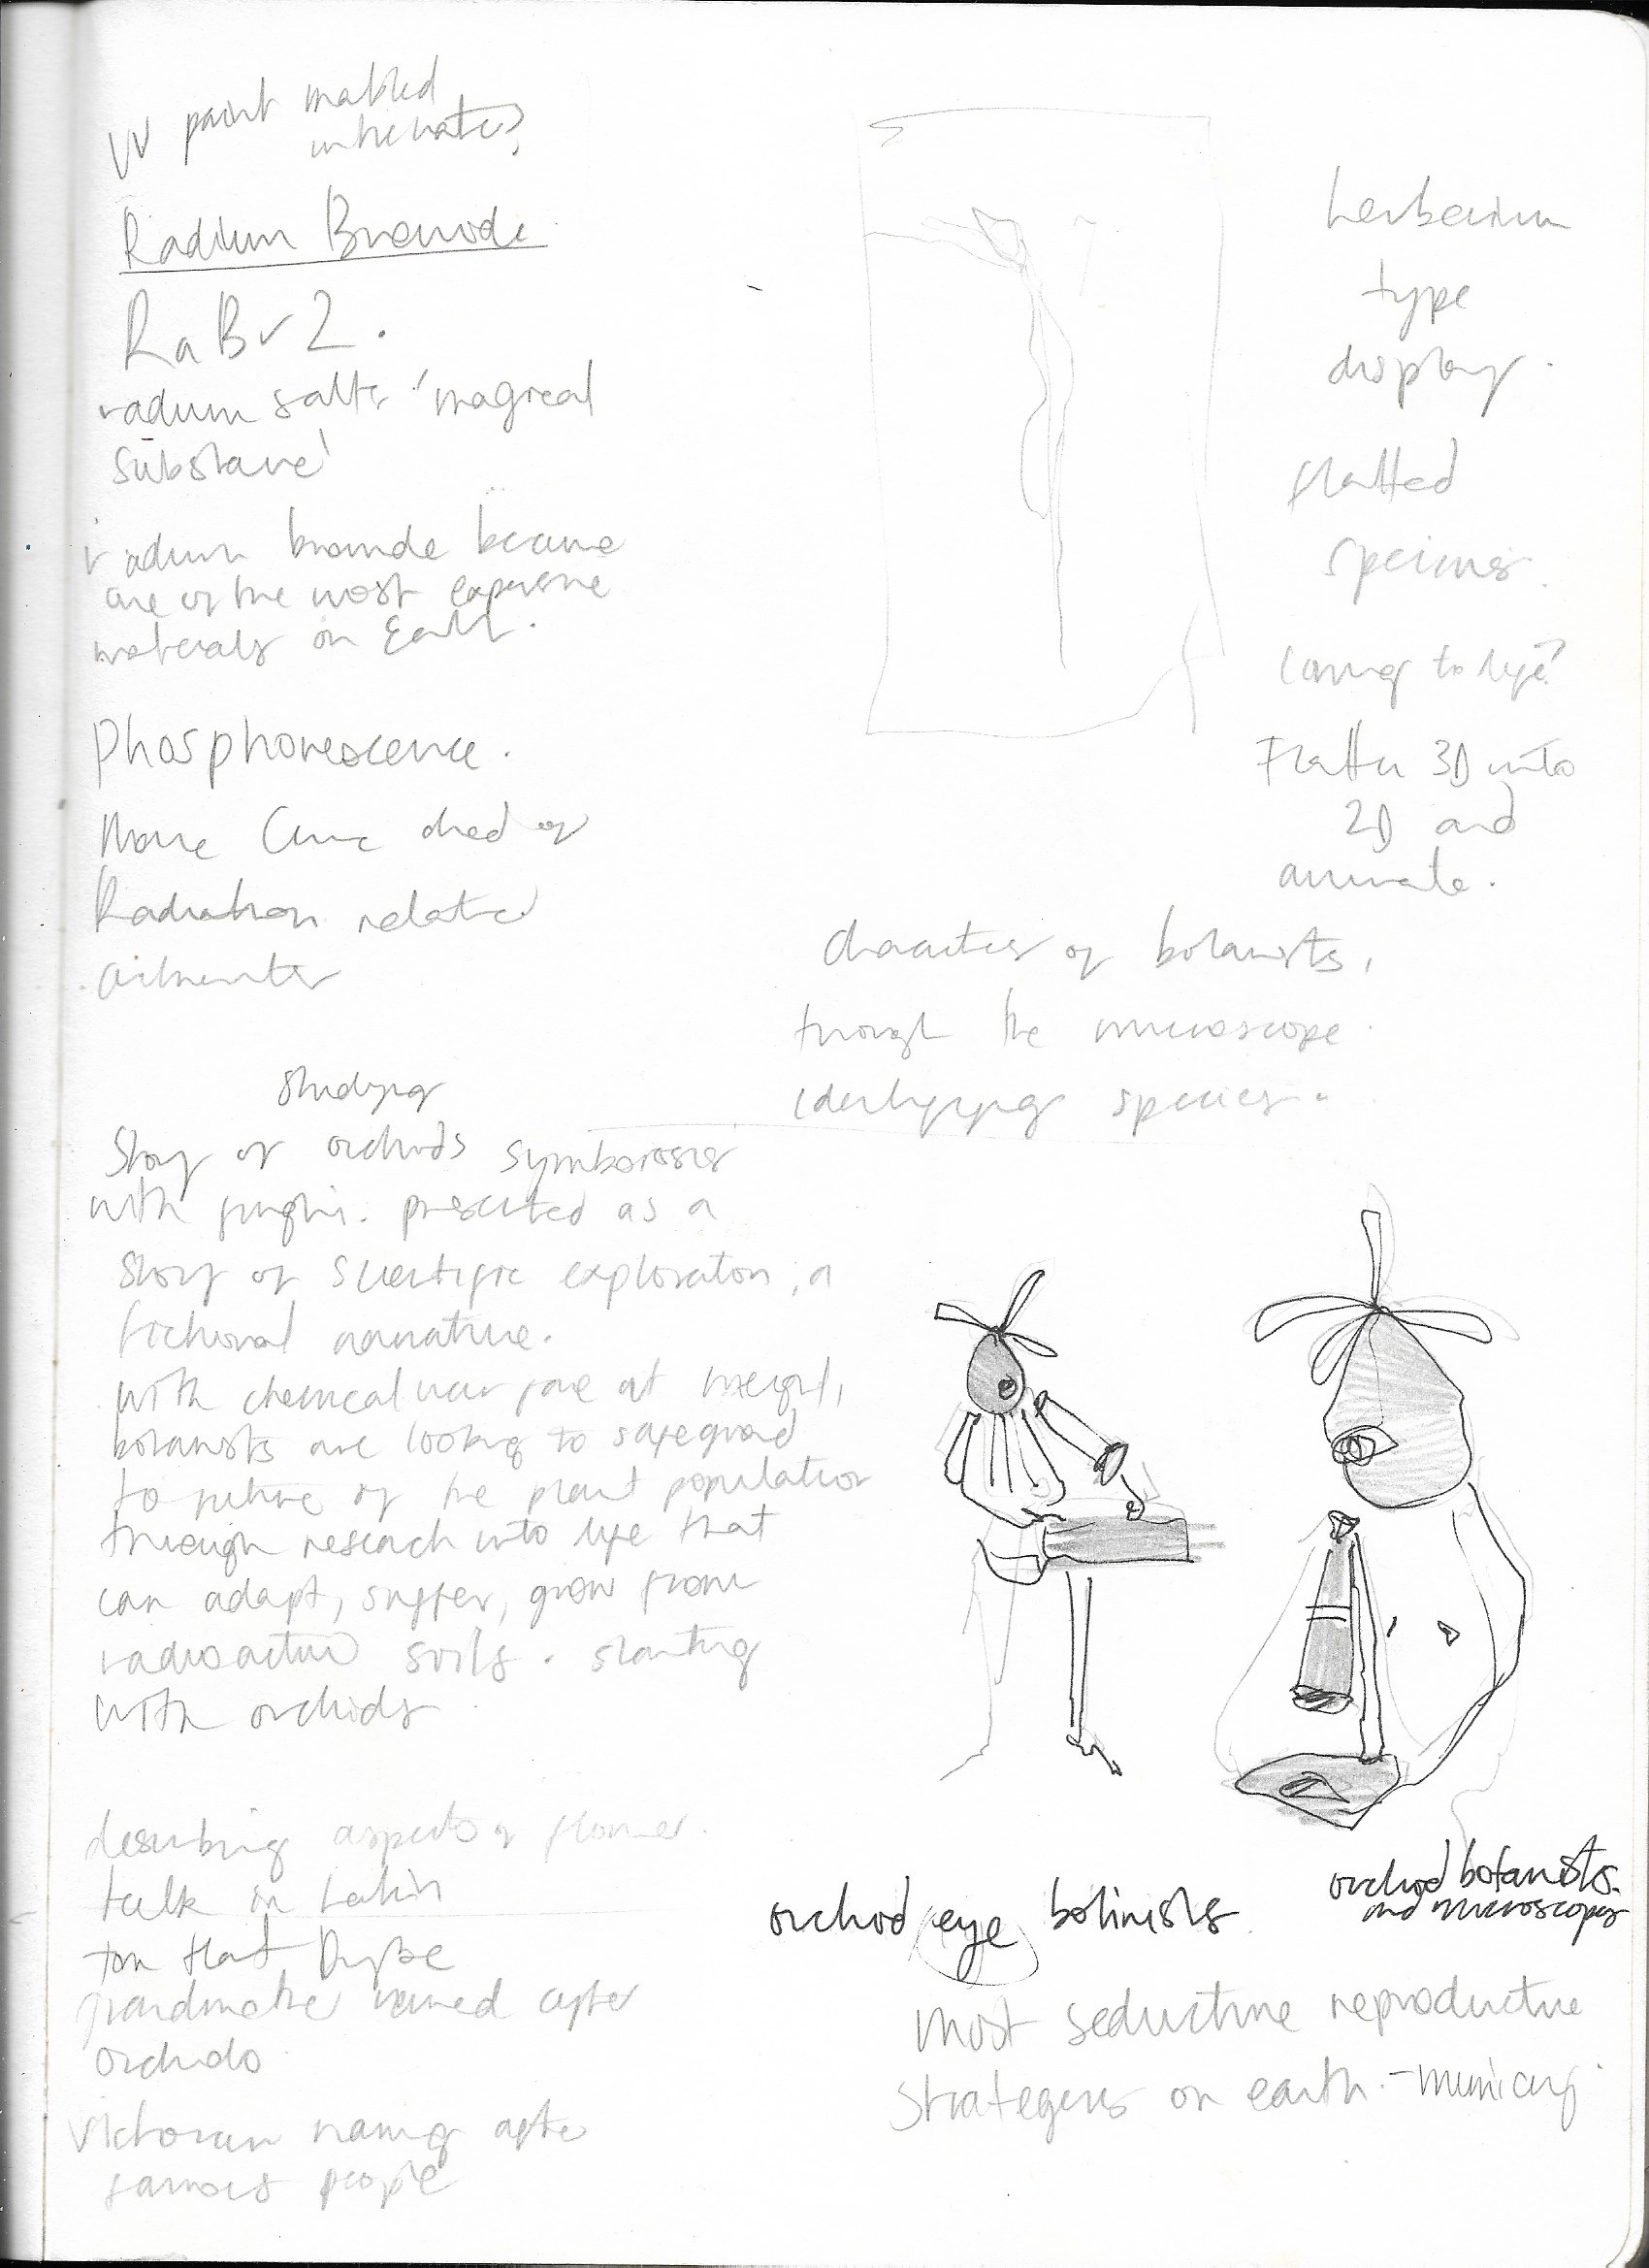 UV paint marked
Radium Bromide
RaBr2.
radium salts 'magical
substance'
radium bromide became
one of the most expensive
materials on Earth.
Phosphorescence.
Marie Curie died of
Radiation related
ailments
studying
Story of orchids symbiosis
with funghi. presented as a
story of scientific exploration, a
fictional narrative.
with chemical warfare at
botanists are looking to safeguard
to future of the plant population
through research into life that
can adapt, suffer, grow from
radioactive soils. starting
with orchids
describing aspects of flower.
talk in Latin
grandmother named after
orchids
Victorian naming after
famous people
herbarium
type
display.
flatted
species.
coming to life?
Flatten 3D into
2D and
animate.
characters of botanists,
through the microscope.
identifying species.
orchid eye botinists
orchid botanists.
and microscopes
most seductive reproductive
strategers on earth. - mimicry.